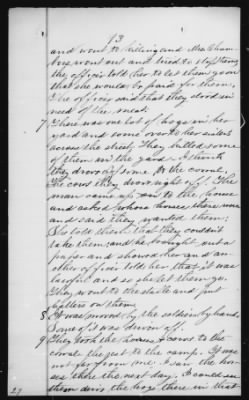 13
and went to killing and Mrs Cham-
bers went out and tried to stop them
the officer told her to let them go on
that she would be paid for them,
The officer said that they stood in
need of the meat.
7 There was one lot of hogs in her
yard and some over to her sisters
across the street. They killed some
of them in the yard. I think
they drove off some to the corral.
The cows they drove right off. The
man came up and to the house
and asked whose horses these were
and said they wanted them;
She told them that they couldn't
take them; and he brought out a
paper and showed her and an
other officer told her that it was
lawful and so she let them go.
They went to the stable and put
halters on them
8 It was moved by the soldiers by hand.
Some of it was driven off.
9 They took the horses & cows to the
corral the rest to the camp. It was
not far from me. I saw the hor-
ses there the next day. I could see
them the hogs there in that
29